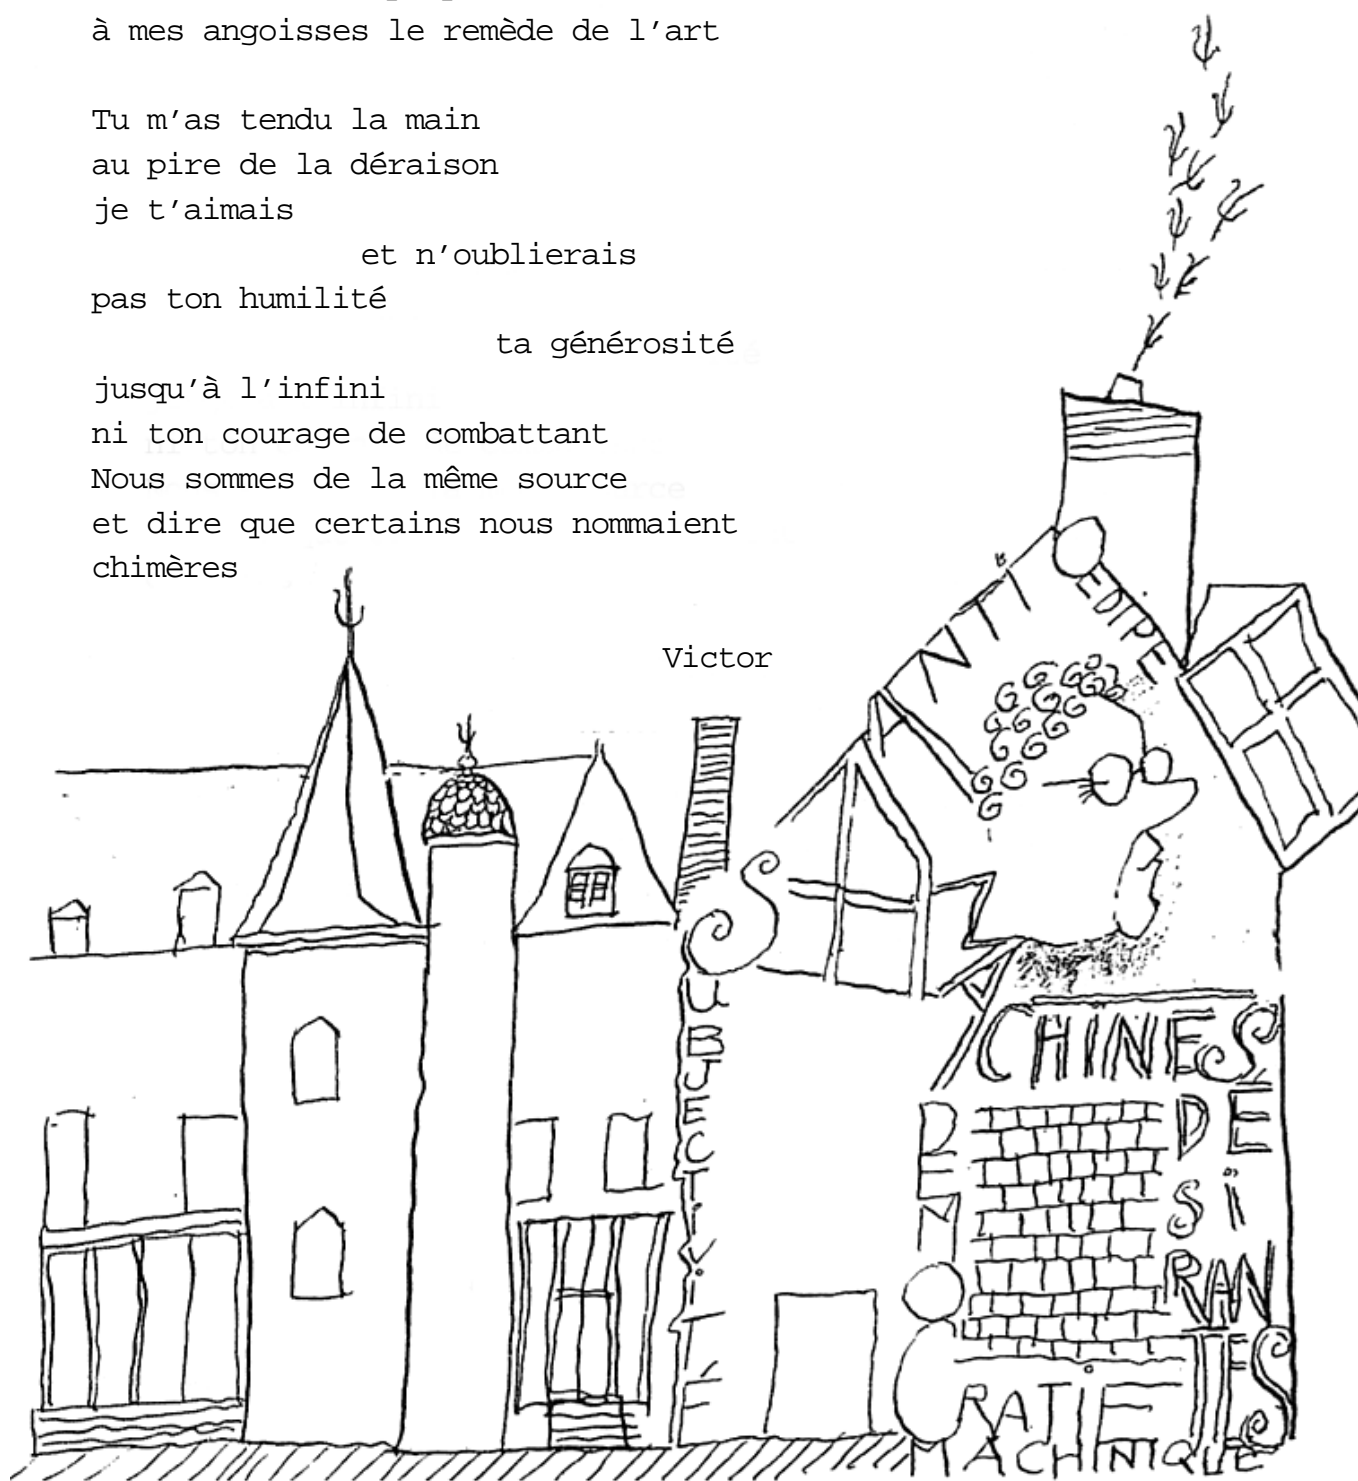 à mes angoisses le remède de l'art
Tu m'as tendu la main
au pire de la déraison
je t'aimais
et n'oublierais
pas ton humilité
ta générosité
jusqu'à l'infini
ni ton courage de combattant
Nous sommes de la même source
et dire que certains nous nommaient
chimères
Victor
ANTI
OEDIPE
SUBJECTIVITÉ
MACHINES
DÉ
Si
RAN
TES
DEMOCRATiE
MACHINIQUE